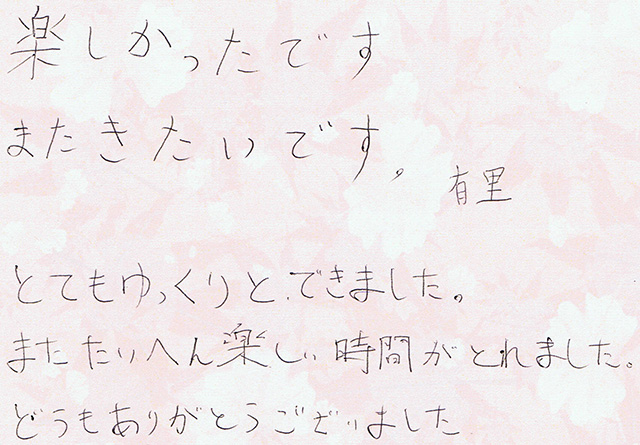 楽しかったです
またきたいです。
有里
とてもゆっくりと.できました。
またたいへん楽しい時間がとれました。
どうもありがとうございました